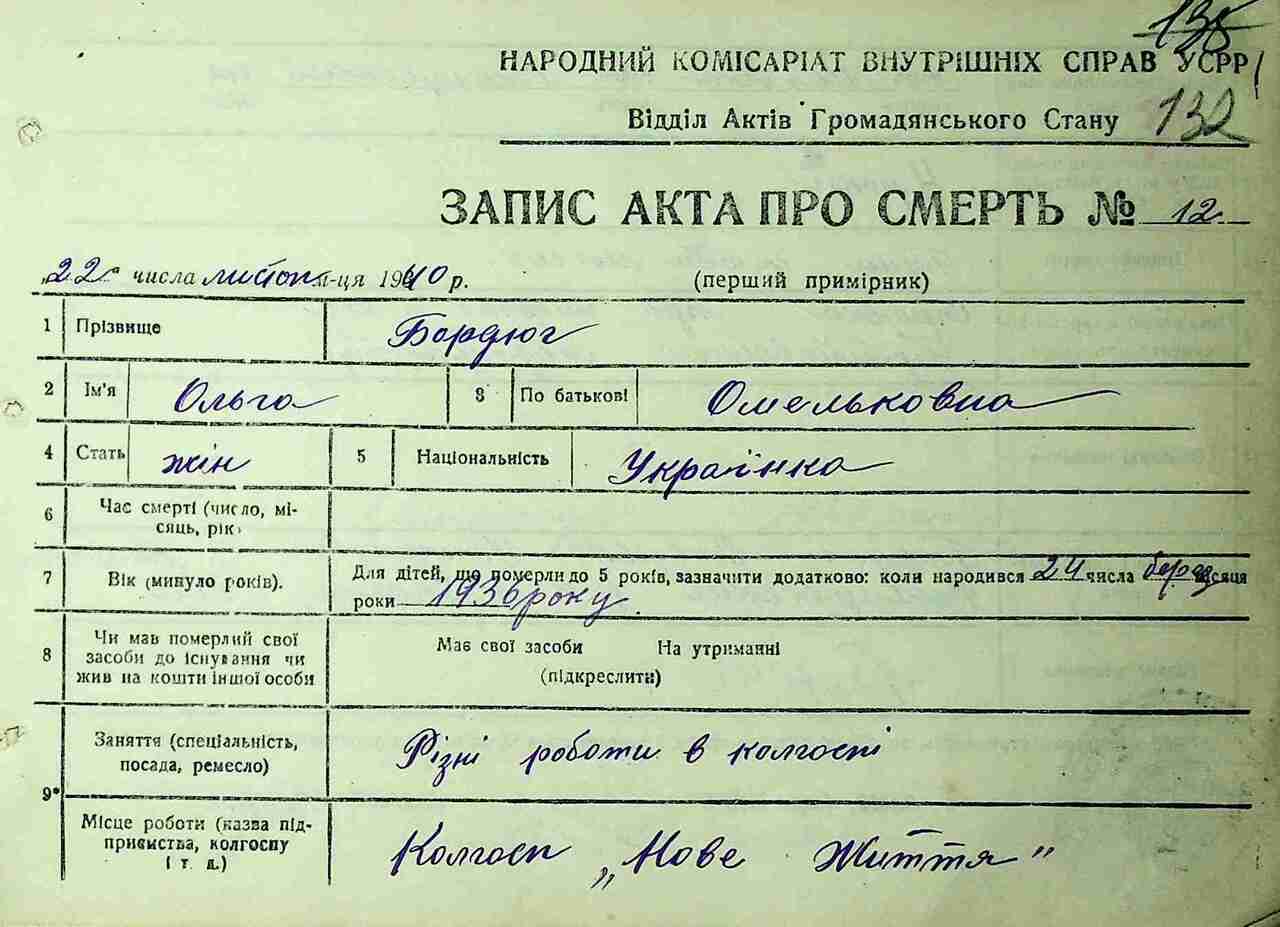 135
НАРОДНИЙ КОМІСАРІАТ ВНУТРІШНІХ СПРАВ УСРР
Відділ Актів Громадянського Стану 132
ЗАПИС АКТА ПРО СМЕРТЬ № 12
„22" числа листоп м-ця 1940 р. (перший примірник)
1 Прізвище Бордюг
2 Ім'я Ольга 3 По батькові Омельковна
4 Стать жін 5 Національність Українка
6 Час смерті (число, мі-
сяць, рік)
7 Вік (минуло років). Для дітей, що померли до 5 років, зазначити додатково: коли народився 24 числа берез місяця
роки 1936 року
8 Чи мав померлий свої
засоби до існування чи
жив на кошти іншої особи
Має свої засоби На утриманні
(підкреслити)
9 Заняття (спеціальність,
посада, ремесло)
Різні роботи в колгоспі
Місце роботи (назва під-
приємства, колгоспу
і т. д.)
Колгосп „Нове Життя"